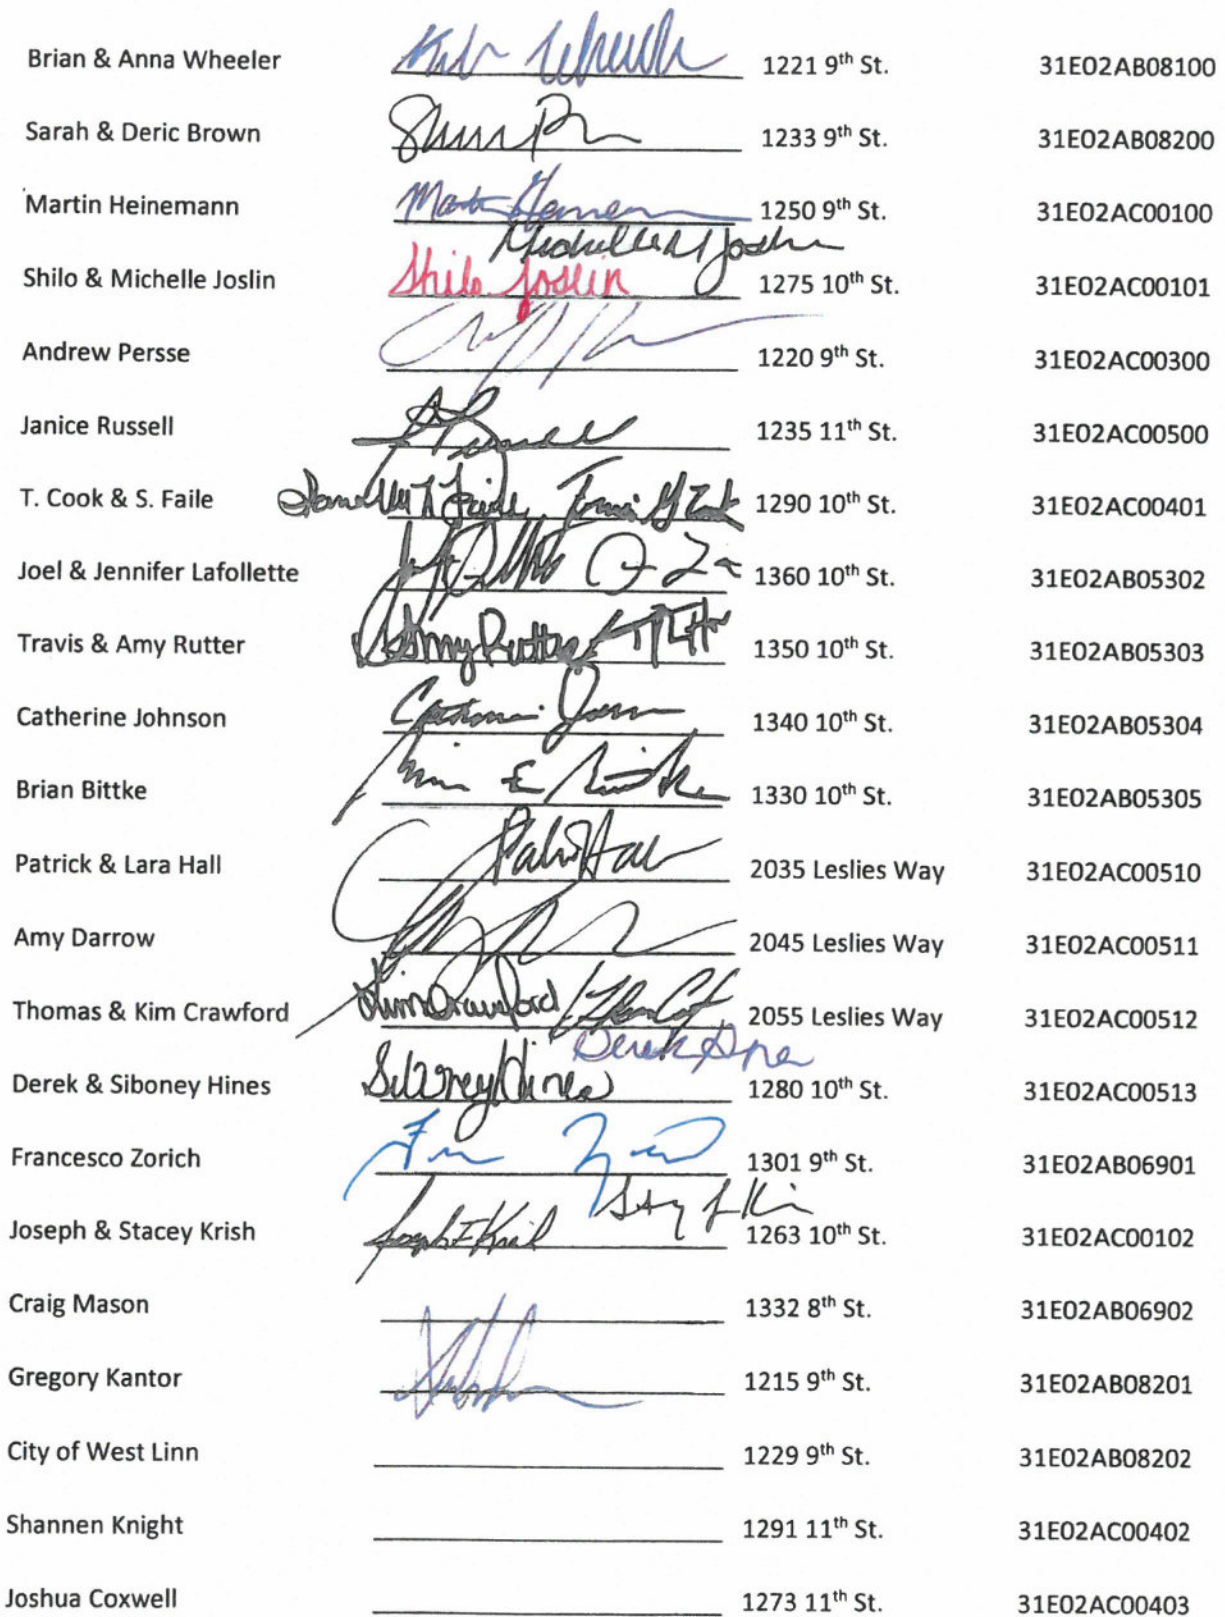 Brian & Anna Wheeler 1221 9th St. 31E02AB08100
Sarah & Deric Brown 1233 9th St. 31E02AB08200
Martin Heinemann 1250 9th St. 31E02AC00100
Michelle M Joslin
Shilo & Michelle Joslin Shilo Joslin 1275 10th St. 31E02AC00101
Andrew Persse 1220 9th St. 31E02AC00300
Janice Russell 1235 11th St. 31E02AC00500
T. Cook & S. Faile 1290 10th St. 31E02AC00401
Joel & Jennifer Lafollette 1360 10th St. 31E02AB05302
Travis & Amy Rutter Amy Rutter 1350 10th St. 31E02AB05303
Catherine Johnson 1340 10th St. 31E02AB05304
Brian Bittke 1330 10th St. 31E02AB05305
Patrick & Lara Hall 2035 Leslies Way 31E02AC00510
Amy Darrow 2045 Leslies Way 31E02AC00511
Thomas & Kim Crawford Kim Crawford 2055 Leslies Way 31E02AC00512
Derek Hines
Derek & Siboney Hines Siboney Hines 1280 10th St. 31E02AC00513
Francesco Zorich 1301 9th St. 31E02AB06901
Joseph & Stacey Krish Joseph E Krish 1263 10th St. 31E02AC00102
Craig Mason 1332 8th St. 31E02AB06902
Gregory Kantor 1215 9th St. 31E02AB08201
City of West Linn 1229 9th St. 31E02AB08202
Shannen Knight 1291 11th St. 31E02AC00402
Joshua Coxwell 1273 11th St. 31E02AC00403